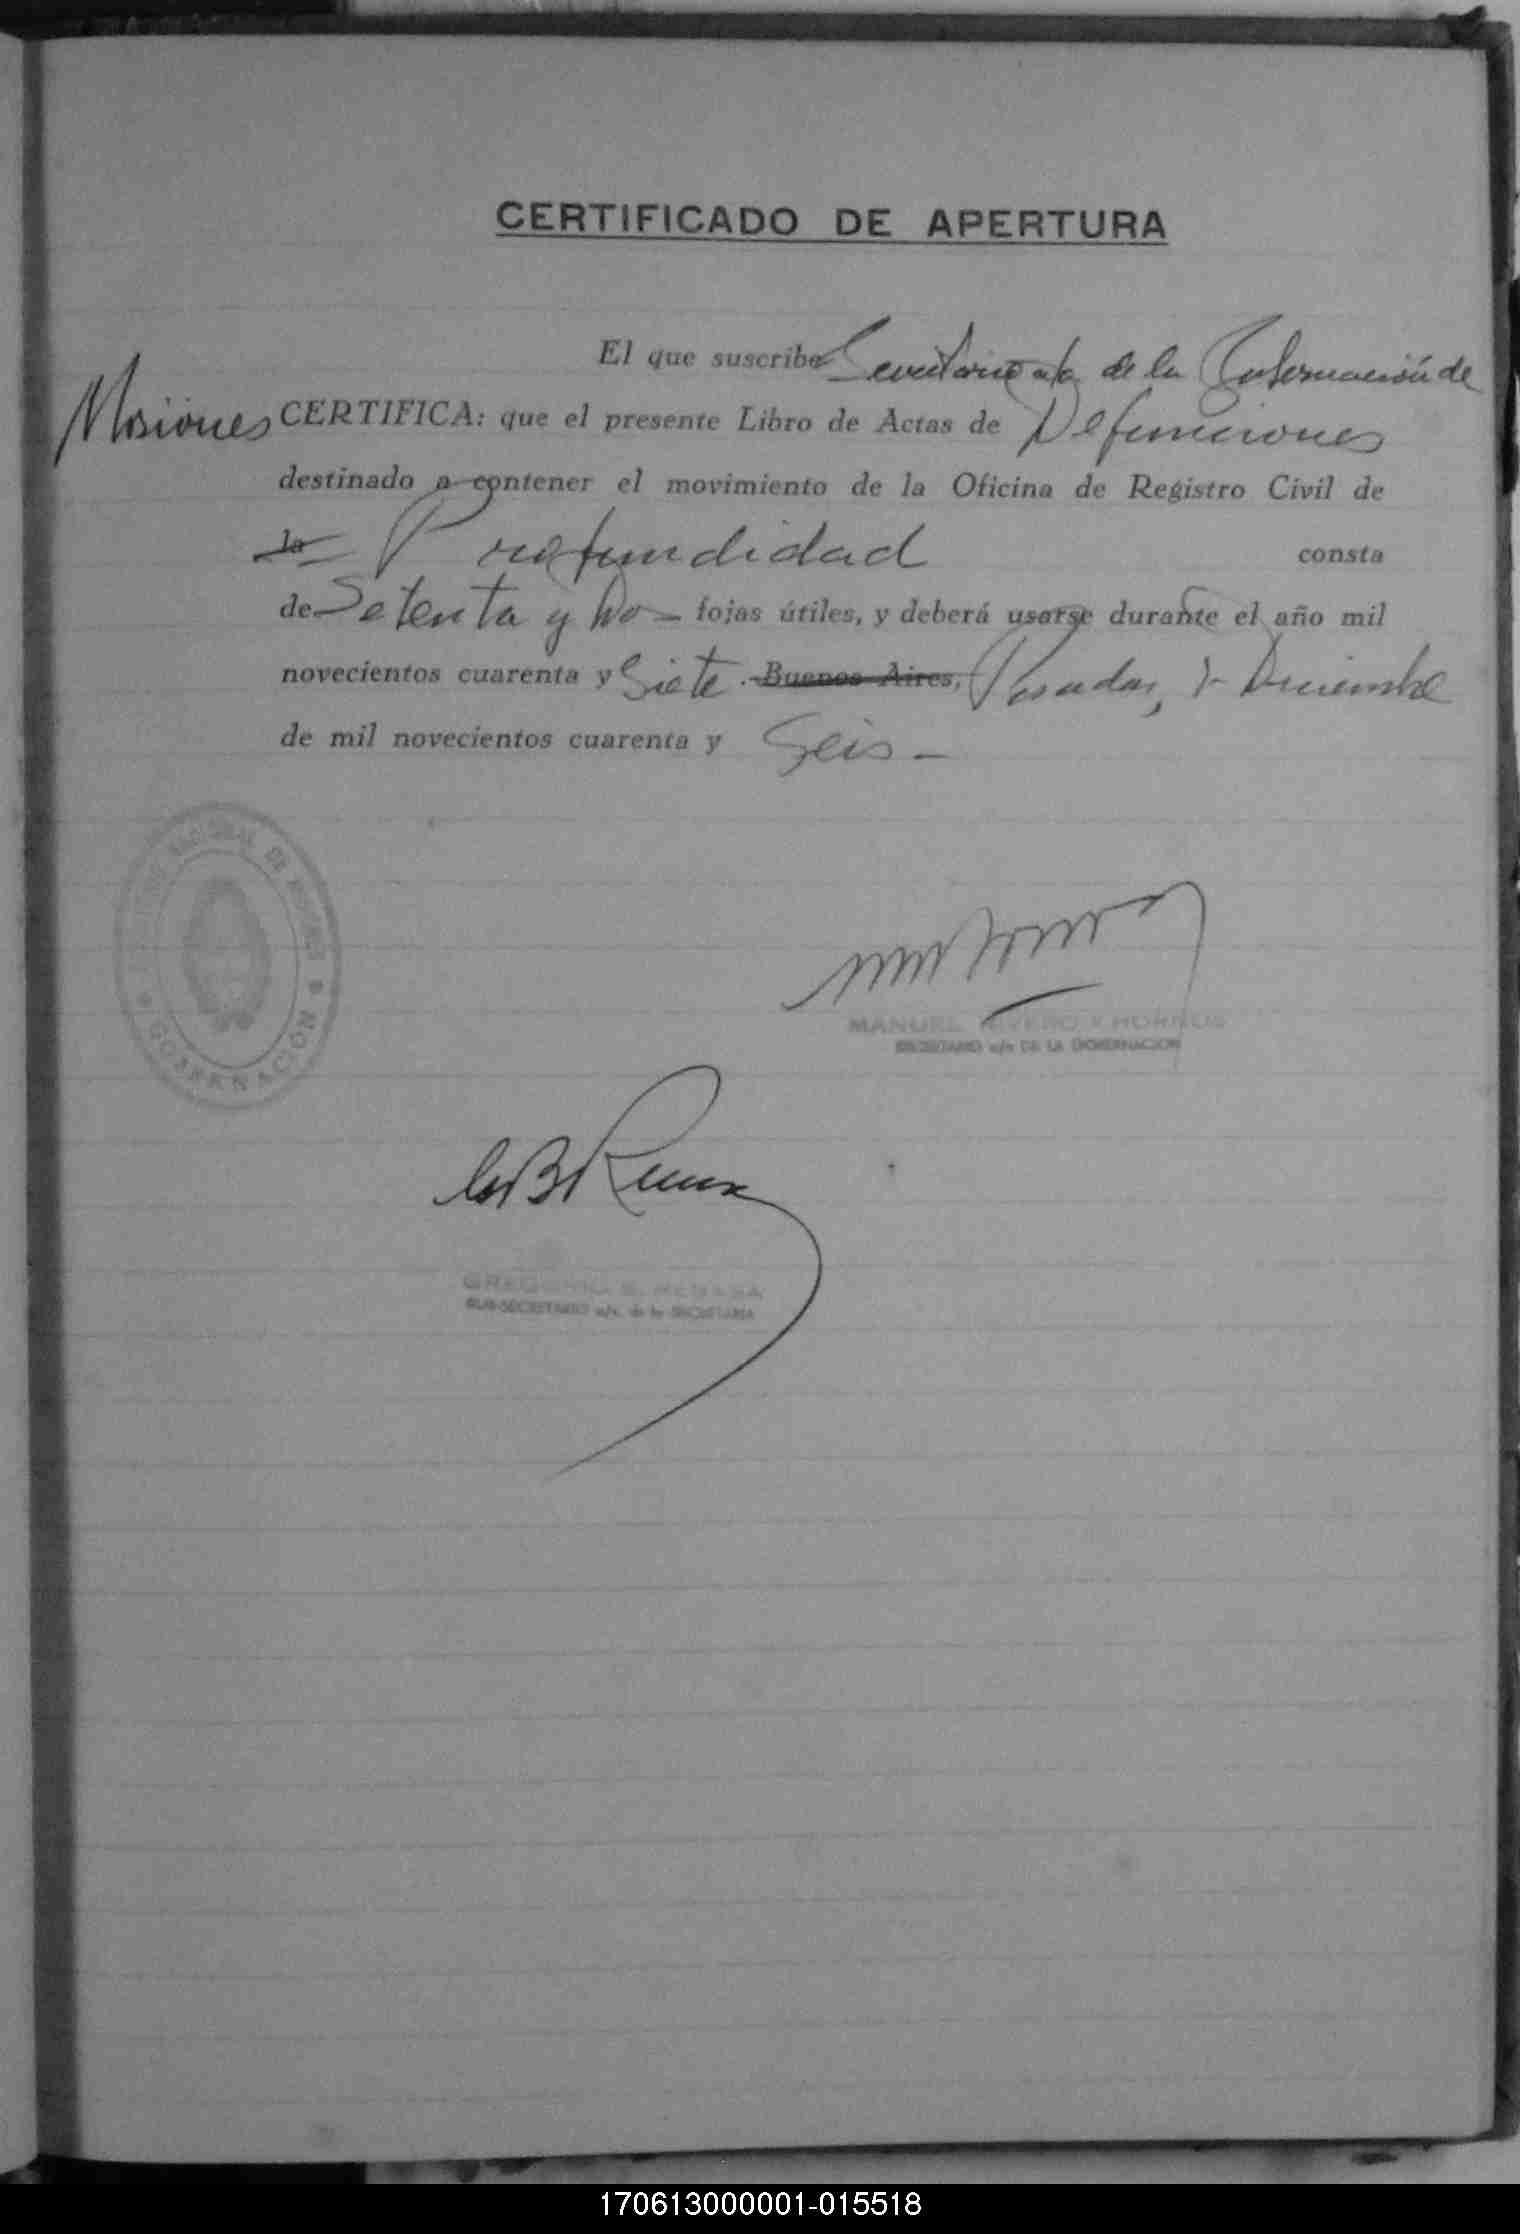 CERTIFICADO DE APERTURA
El que suscribe Secretario a/c de la Gobernación de
Misiones CERTIFICA: que el presente Libro de Actas de Defunciones
destinado a contener el movimiento de la Oficina de Registro Civil de
la Profundidad consta
de Setenta y dos fojas útiles, y deberá usarse durante el año mil
novecientos cuarenta y Siete. Buenos Aires, Posadas, Diciembre
de mil novecientos cuarenta y Seis -
NACIONAL DE MISIONES
GOBERNACIÓN
MANUEL RIVERO Y HORNOS
SECRETARIO a/c DE LA GOBERNACION
GREGORIO
SUB-SECRETARIO a/c. de la SECRETARIA
170613000001-015518